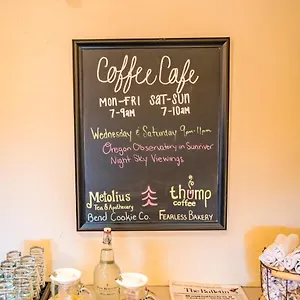 Coffee Cafe
MON-FRI SAT-SUN
7-9am 7-10am
Wednesday & Saturday 9pm-11pm
Oregon Observatory in Sunriver
Night Sky Viewings
Metolius
Tea & Apothecary
Bend Cookie Co.
thump
coffee
FEARLESS BAKERY
The Bulletin